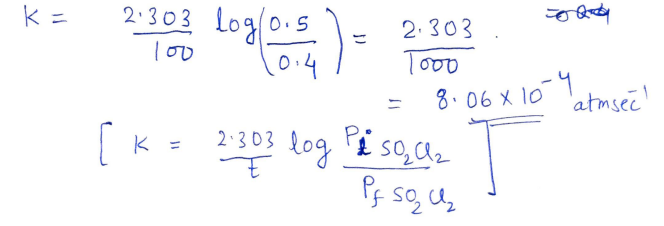 K = 2.303/100 log(0.5/0.4) = 2.303/1000 .
= 8.06 × 10⁻⁴ atm sec⁻¹
[ K = 2.303/t log Pi SO₂Cl₂/Pf SO₂Cl₂ ]